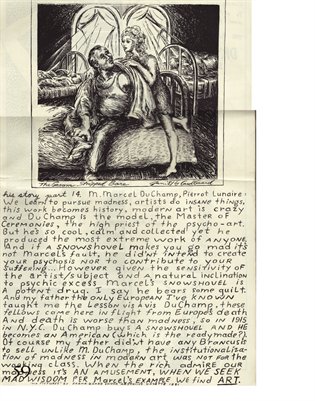 The Groom Stripped Bare
his story part 14. M. Marcel DuChamp, Pierrot Lunaire:
We Learn to pursue madness, artists do insane things,
this work becomes history. modern art is crazy
and DuChamp is the model, the Master of
Ceremonies, the high priest of the psycho-art.
But he's so cool, calm and collected yet he
produced the most extreme work of anyone
And if A SNOWSHOVEL makes you go mad it's
not Marcel's fault, he didn't intend to create
your psychosis nor to contribute to your
suffering... However given the sensitivity of
the artist/subject and a natural inclination
to psychic excess Marcel's SNOWSHOVEL is
A potent drug. I say he bears some guilt.
And my father the only European I've known
taught me the LESSON vis a vis DuChamp, these
fellows come here in flight from Europe's death
And death is worse than madness, so in 1915
in N.Y.C. DuChamp buys A SNOWSHOVEL AND HE
becomes an American (which is the readymade?).
Of course my father didn't have any Brancusis
to sell, unlike M. DuChamp, the institutionalisa-
tion of madness in modern art was not for the
working class. When the rich admire our
madness it's AN AMUSEMENT, WHEN WE SEEK
MAD WISDOM PER MARCEL'S EXAMPLE WE find ART.